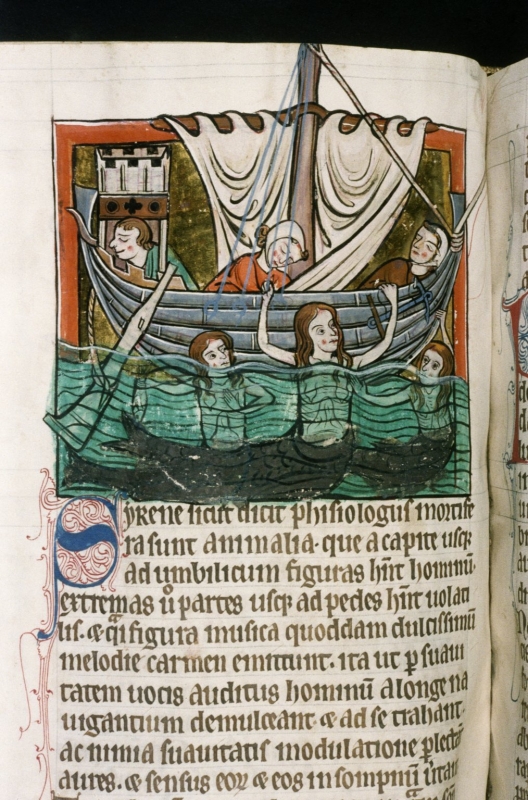 Syrene sicut dicit phisiologus mortife
ra sunt animalia. que a capite usq;
ad umbilicum figuras hn̄t hominū.
extremas ů partes usq; ad pedes hn̄t uolati
lis. & qͣ figura musica quoddam dulcissimū
melodie carmen emittunt. ita ut p suaui
tatem uocis auditus hominū a longe na
uigantium demulceant & ad se trahant.
ac nimia suauitatis modulatione
aures. & sensus eoꝝ & eos in sompnū